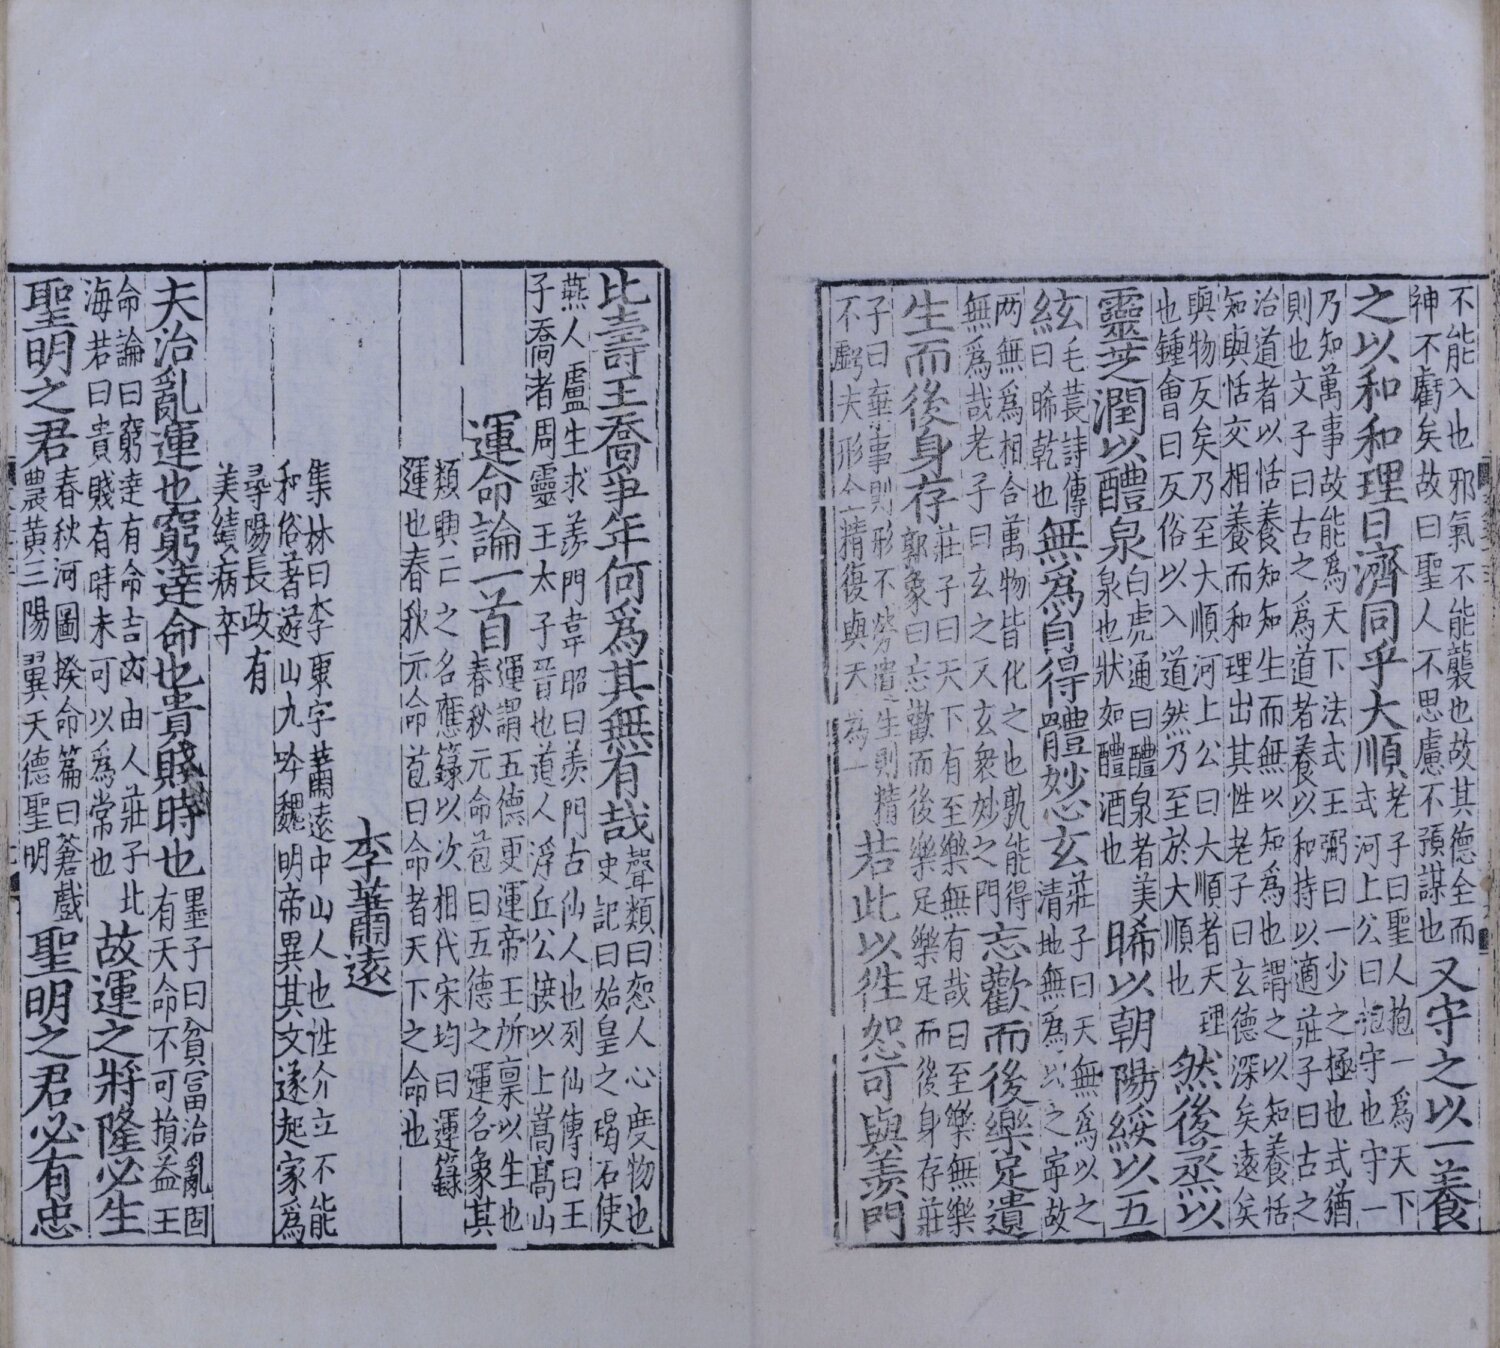 不能入也邪氣不能襲也故其德全而
神不虧矣故曰聖人不思慮不預謀也
又守之以一養
之以和和理日濟同乎大順
老子曰聖人抱一爲天下
式河上公曰抱守也守一
乃知萬事故能爲天下法式王弼曰一少之極也式猶
則也文子曰古之爲道者養以和持以適莊子曰古之
治道者以恬養知知生而無以知爲也謂之以知養恬
知與恬交相養而和理出其性老子曰玄德深矣遠矣
與物反矣乃至大順河上公曰大順者天理
也鍾會曰反俗以入道然乃至於大順也
然後蒸以
靈芝潤以醴泉
白虎通曰醴泉者美
泉也狀如醴酒也
晞以朝陽綏以五
絃
毛萇詩傳
曰晞乾也
無爲自得體妙心玄
莊子曰天無爲以之
清地無爲以之寧故
两無爲相合萬物皆化之也孰能得
無爲哉老子曰玄之又玄衆妙之門
忘歡而後樂足遺
生而後身存
莊子曰天下有至樂無有哉曰至樂無樂
郭象曰忘歡而後樂足樂足而後身存莊
子曰棄事則形不勞遺生則精
不虧夫形全精復與天爲一
若此以往恕可與羨門
比壽王喬爭年何爲其無有哉
聲類曰恕人心度物也
史記曰始皇之碣石使
燕人盧生求羨門韋昭曰羨門古仙人也列仙傳曰王
子喬者周靈王太子晉也道人浮丘公接以上嵩髙山
運命論一首
運謂五德更運帝王所稟以生也
春秋元命苞曰五德之運名象其
類興亡之名應籙以次相代宋均曰運籙
運也春秋元命苞曰命者天下之命也
李蕭遠
集林曰李康字蕭遠中山人也性介立不能
和俗著遊山九吟魏明帝異其文遂起家爲
尋陽長政有
美績病卒
夫治亂運也窮達命也貴賤時也
墨子曰貧富治亂固
有天命不可損益王
命論曰窮達有命吉凶由人莊子北
海若曰貴賤有時未可以爲常也
故運之將隆必生
聖明之君
春秋河圖揆命篇曰蒼戲
農黃三陽翼天德聖明
聖明之君必有忠